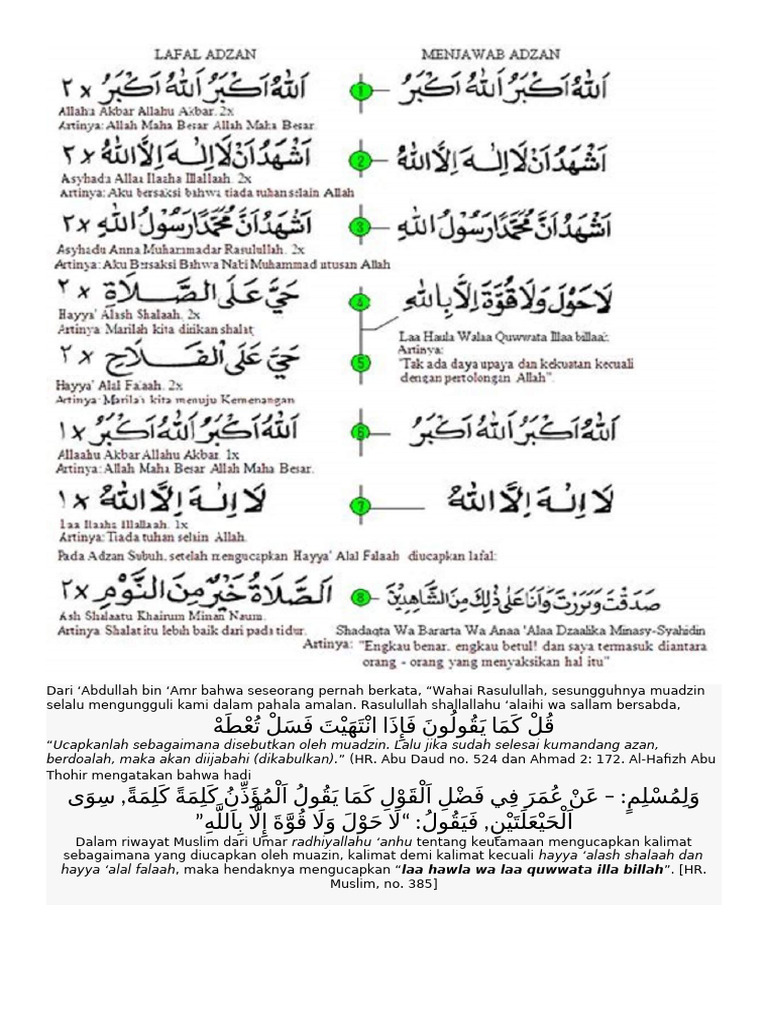 LAFAL ADZAN MENJAWAB ADZAN
اَللهُ اَكْبَرُ اَللهُ اَكْبَرُ ×٢ 1 اَللهُ اَكْبَرُ اَللهُ اَكْبَرُ
Allahu Akbar Allahu Akbar. 2x
Artinya: Allah Maha Besar Allah Maha Besar.
اَشْهَدُ اَنْ لَا اِلٰهَ اِلَّا اللهُ ×٢ 2 اَشْهَدُ اَنْ لَا اِلٰهَ اِلَّا اللهُ
Asyhadu Allaa Ilaaha Illallaah. 2x
Artinya: Aku bersaksi bahwa tiada tuhan selain Allah
اَشْهَدُ اَنَّ مُحَمَّدًا رَسُوْلُ اللهِ ×٢ 3 اَشْهَدُ اَنَّ مُحَمَّدًا رَسُوْلُ اللهِ
Asyhadu Anna Muhammadar Rasulullah. 2x
Artinya: Aku Bersaksi Bahwa Nabi Muhammad utusan Allah
حَيَّ عَلَى الصَّلَاةِ ×٢ 4 لَا حَوْلَ وَلَا قُوَّةَ اِلَّا بِاللهِ
Hayya' Alash Shalaah. 2x
Artinya: Marilah kita dirikan shalat
Laa Haula Walaa Quwwata Illaa billaah.
Artinya:
"Tak ada daya upaya dan kekuatan kecuali
dengan pertolongan Allah".
حَيَّ عَلَى الْفَلَاحِ ×٢ 5
Hayya' Alal Falaah. 2x
Artinya: Marilah kita menuju Kemenangan
اَللهُ اَكْبَرُ اَللهُ اَكْبَرُ ×١ 6 اَللهُ اَكْبَرُ اَللهُ اَكْبَرُ
Allaahu Akbar Allahu Akbar. 1x
Artinya: Allah Maha Besar Allah Maha Besar.
لَا اِلٰهَ اِلَّا اللهُ ×١ 7 لَا اِلٰهَ اِلَّا اللهُ
Laa Ilaaha Illallaah. 1x
Artinya: Tiada tuhan selain Allah.
Pada Adzan Subuh, setelah mengucapkan Hayya' Alal Falaah diucapkan lafal:
اَلصَّلَاةُ خَيْرٌ مِنَ النَّوْمِ ×٢ 8 صَدَقْتَ وَبَرَرْتَ وَاَنَا عَلَى ذٰلِكَ مِنَ الشَّاهِدِيْنَ
Ash Shalaatu Khairum Minan Naum.
Artinya: Shalat itu lebih baik dari pada tidur.
Shadaqta Wa Bararta Wa Anaa 'Alaa Dzaalika Minasy-Syahidin
Artinya: "Engkau benar, engkau betul! dan saya termasuk diantara
orang - orang yang menyaksikan hal itu"
Dari ‘Abdullah bin ‘Amr bahwa seseorang pernah berkata, “Wahai Rasulullah, sesungguhnya muadzin
selalu mengungguli kami dalam pahala amalan. Rasulullah shallallahu ‘alaihi wa sallam bersabda,
قُلْ كَمَا يَقُولُونَ فَإِذَا انْتَهَيْتَ فَسَلْ تُعْطَهْ
“Ucapkanlah sebagaimana disebutkan oleh muadzin. Lalu jika sudah selesai kumandang azan,
berdoalah, maka akan diijabahi (dikabulkan).” (HR. Abu Daud no. 524 dan Ahmad 2: 172. Al-Hafizh Abu
Thohir mengatakan bahwa hadi
وَلِمُسْلِمٍ: – عَنْ عُمَرَ فِي فَضْلِ اَلْقَوْلِ كَمَا يَقُولُ اَلْمُؤَذِّنُ كَلِمَةً كَلِمَةً, سِوَى
اَلْحَيْعَلَتَيْنِ, فَيَقُولُ: “لَا حَوْلَ وَلَا قُوَّةَ إِلَّا بِاَللَّهِ”
Dalam riwayat Muslim dari Umar radhiyallahu ‘anhu tentang keutamaan mengucapkan kalimat
sebagaimana yang diucapkan oleh muazin, kalimat demi kalimat kecuali hayya ‘alash shalaah dan
hayya ‘alal falaah, maka hendaknya mengucapkan “laa hawla wa laa quwwata illa billah”. [HR.
Muslim, no. 385]